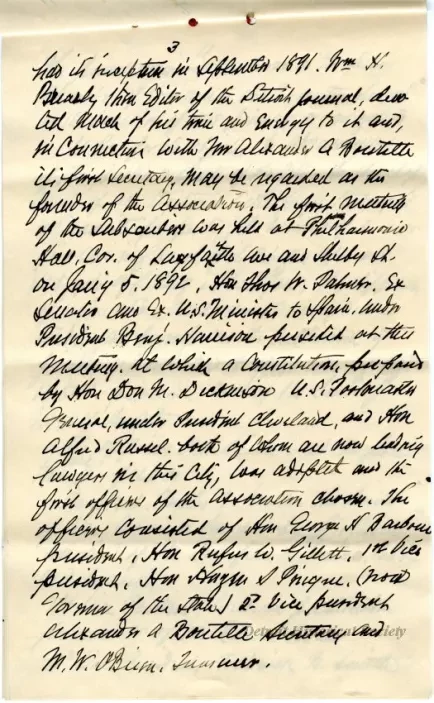 3
had its inception in September 1891. Wm H.
Brearly then Editor of the Detroit Journal, devo
ted much of his time and Energy to it and,
in Connection with Mr Alexander A Boutelle
its first Secretary, may be regarded as the
founder of the Association. The first meeting
of the Subscribers was held at Philharmonic
Hall, Cor. of Lafayette ave and Shelby St.
on Jan'y 5. 1892. Hon Thos W. Palmer. Ex
Senator and Ex. U.S. Minister to Spain, under
President Benj. Harrison presided at this
Meeting. at which a Constitution, prepared
by Hon Don M. Dickinson U.S. Postmaster
General, under President Cleveland, and Hon
Alfred Russel. both of whom are now leading
lawyers in this City, was adopted and the
first officers of the association chosen. The
officers Consisted of Hon George H Barbour
president, Hon Rufus W. Gillett. 1st Vice
president. Hon S Pingree. (now
Governor of the State) 2d Vice, president
Alexander A Boutelle, Secretary and
Detroit Historical Society
M. W. OBrien. Treasurer.